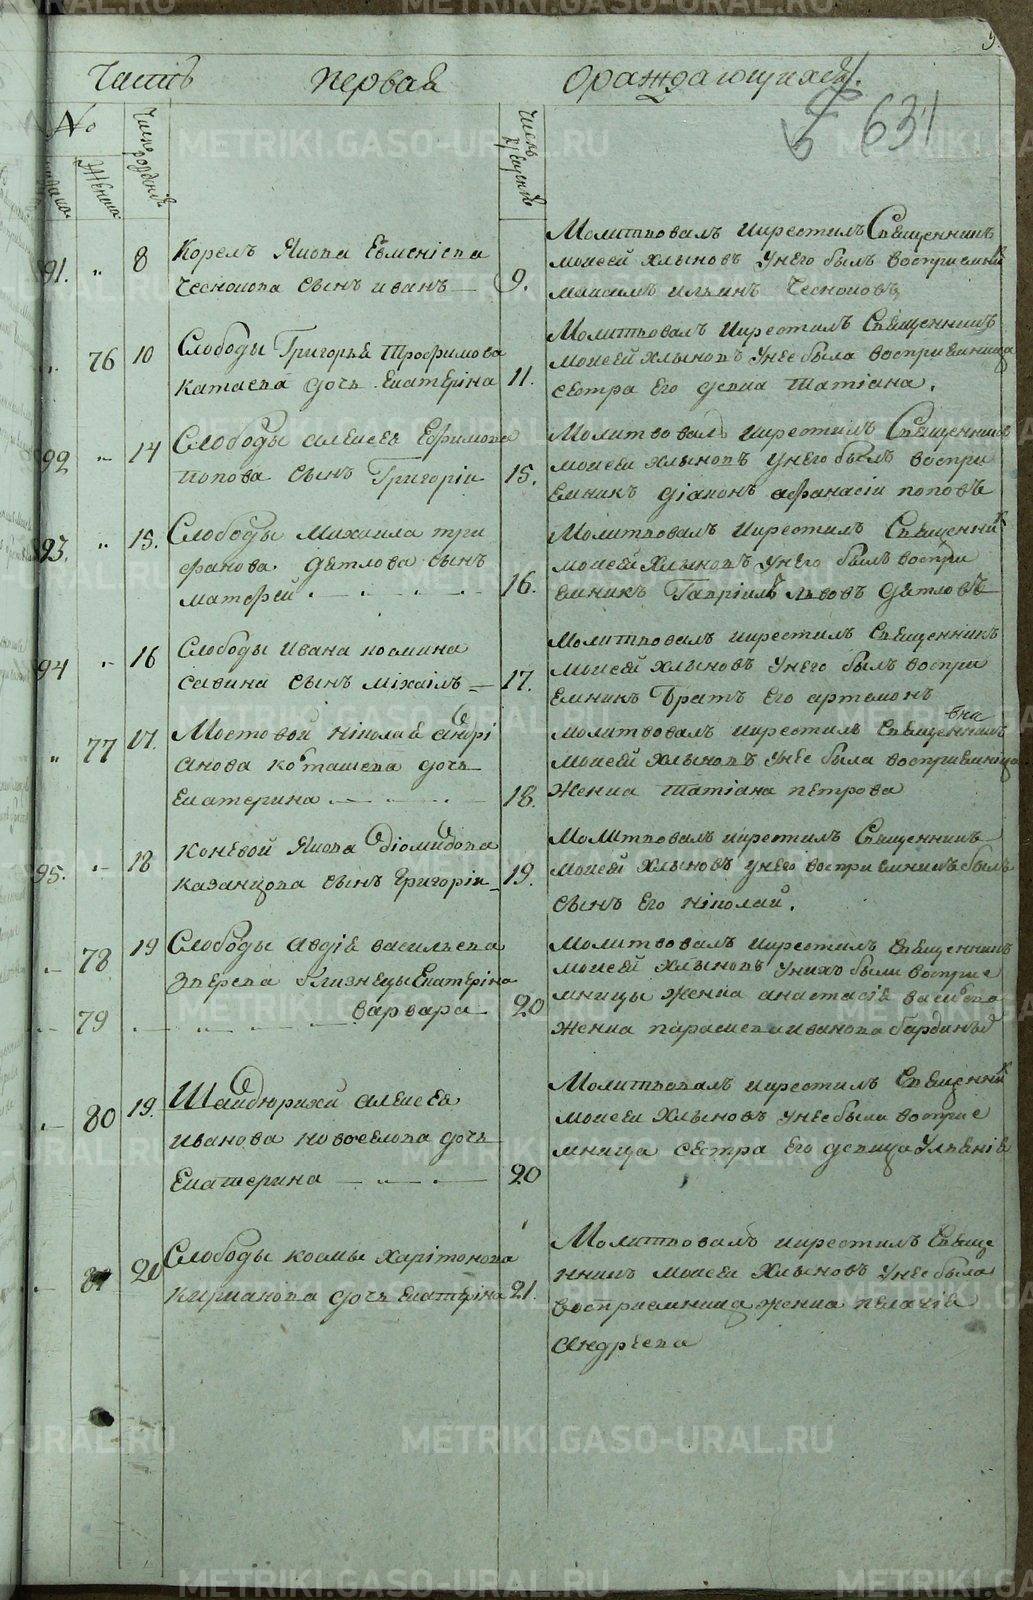 Часть первая ораждающихся.
631
№
Число рождения
Число крещения
Женска
91. „ 8 Корелъ Якова Евменiева
Чеснокова сынъ иванъ —
9.
Молитвовалъ икрестилъ Священникъ
моисей Хлыновъ Унего былъ воспрiемник
максимъ ильинъ Чесноковъ
„ 76 10 Слободы Григорья Трофимова
катаева дочь Екатерiна 11.
Молитвовалъ икрестилъ Священникъ
моисей Хлыновъ Унее была воспрiемница
сестра Его девка Татiана.
92 „ 14 Слободы алексея Ефимова
попова сынъ Григорiи 15.
Молитвовалъ икрестилъ Священникъ
моисеи Хлыновъ Унего былъ воспри
емникъ дiаконъ афанасiи поповъ
93. „ 15. Слободы михаила три
фанова дятлова сынъ
матфей 16.
Молитвовалъ икрестилъ Священник
моисей Хлыновъ Унего былъ воспри
емникъ Гаврiилъ львовъ Дятловъ
94 „ 16 Слободы ивана космина
савина сынъ мiхаiлъ = 17.
Молитвовалъ икрестилъ Священнiкъ
моисей Хлыновъ Унего былъ воспри
емникъ Братъ Его артемонъ
„ 77 17. Мостовой нiколая андрi
анова кобташева дочь
Екатерина 18.
молитвовалъ икрестилъ Священникъ
моисей Хлыновъ Унее была воспрiемнiца
Женка татiана петрова
95. „ 18 Коневой Якова Дiомидова
казанцова сынъ Григорiи 19.
Молитвовалъ икрестилъ Священникъ
моисей Хлыновъ Унего воспрiемникъ былъ
сынъ Его нiколай.
„ 78 19 Слободы авдiя васильева
Зверева близнецы Екатерiна
79 варвара 20
Молитвовалъ икрестилъ священникъ
моисей Хлыновъ Унихъ были воспрiе
мницы женка анастасiя васильева
женка параскева иванова бардиныхъ
„ 80 19. Шайдюрихи алексея
иванова новоселова дочь
Екатерина 20
Молитвовалъ икрестилъ Священник
моисеи Хлыновъ Унее была воспрiе
мница сестра Его девица Улиянiя
81 20 Слободы космы Харiтонова
кирпакова дочь Екатерiна 21.
Молитвовалъ икрестилъ Священ
нникъ моисеи Хлыновъ Унее была
воспрiемница женка пелагiя
андреева
METRIKI.GASO-URAL.RU